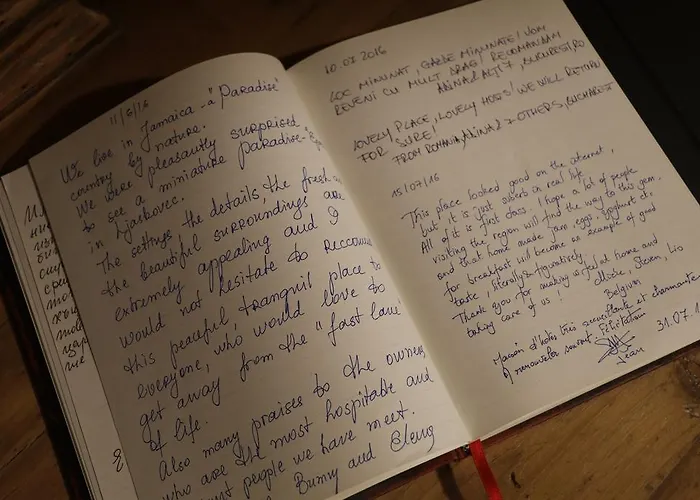 11/6/16
We live in Jamaica - a "Paradise"
country by nature.
We were pleasantly surprised
to see a miniature paradise
in
The settings, the details, the fresh
the beautiful surroundings are
extremely appealing and I
would not hesitate to
this peaceful, tranquil place to
everyone, who would love to
get away from the "fast lane"
of life.
Also many praises to the owners
who are the most hospitable and
people we have meet.
Bunny and
10.07.2016
LOC MINUNAT, GAZDE MINUNATE! VOM
REVENI CU MULT DRAG! RECOMANDAM
ALINA & ALȚI 7, BUCUREȘTI, RO
LOVELY PLACE, LOVELY HOSTS! WE WILL RETURN
FOR SURE!
FROM ROMANIA, ALINA & 7 OTHERS, BUCHAREST
15/07/16
This place looked good on the internet,
but it is just superb in real life.
All of it is first class. I hope a lot of people
visiting the region will find the way to this gem,
and that home made jam, eggs, yoghurt etc.
for breakfast will become an example of good
taste, literally & figuratively.
Thank you for making us feel at home and
taking care of us! Steven,
Belgium
Maison d'hôtes très accueillante et charmante
A renouveler souvent. Félicitations
31.07.1
Jean